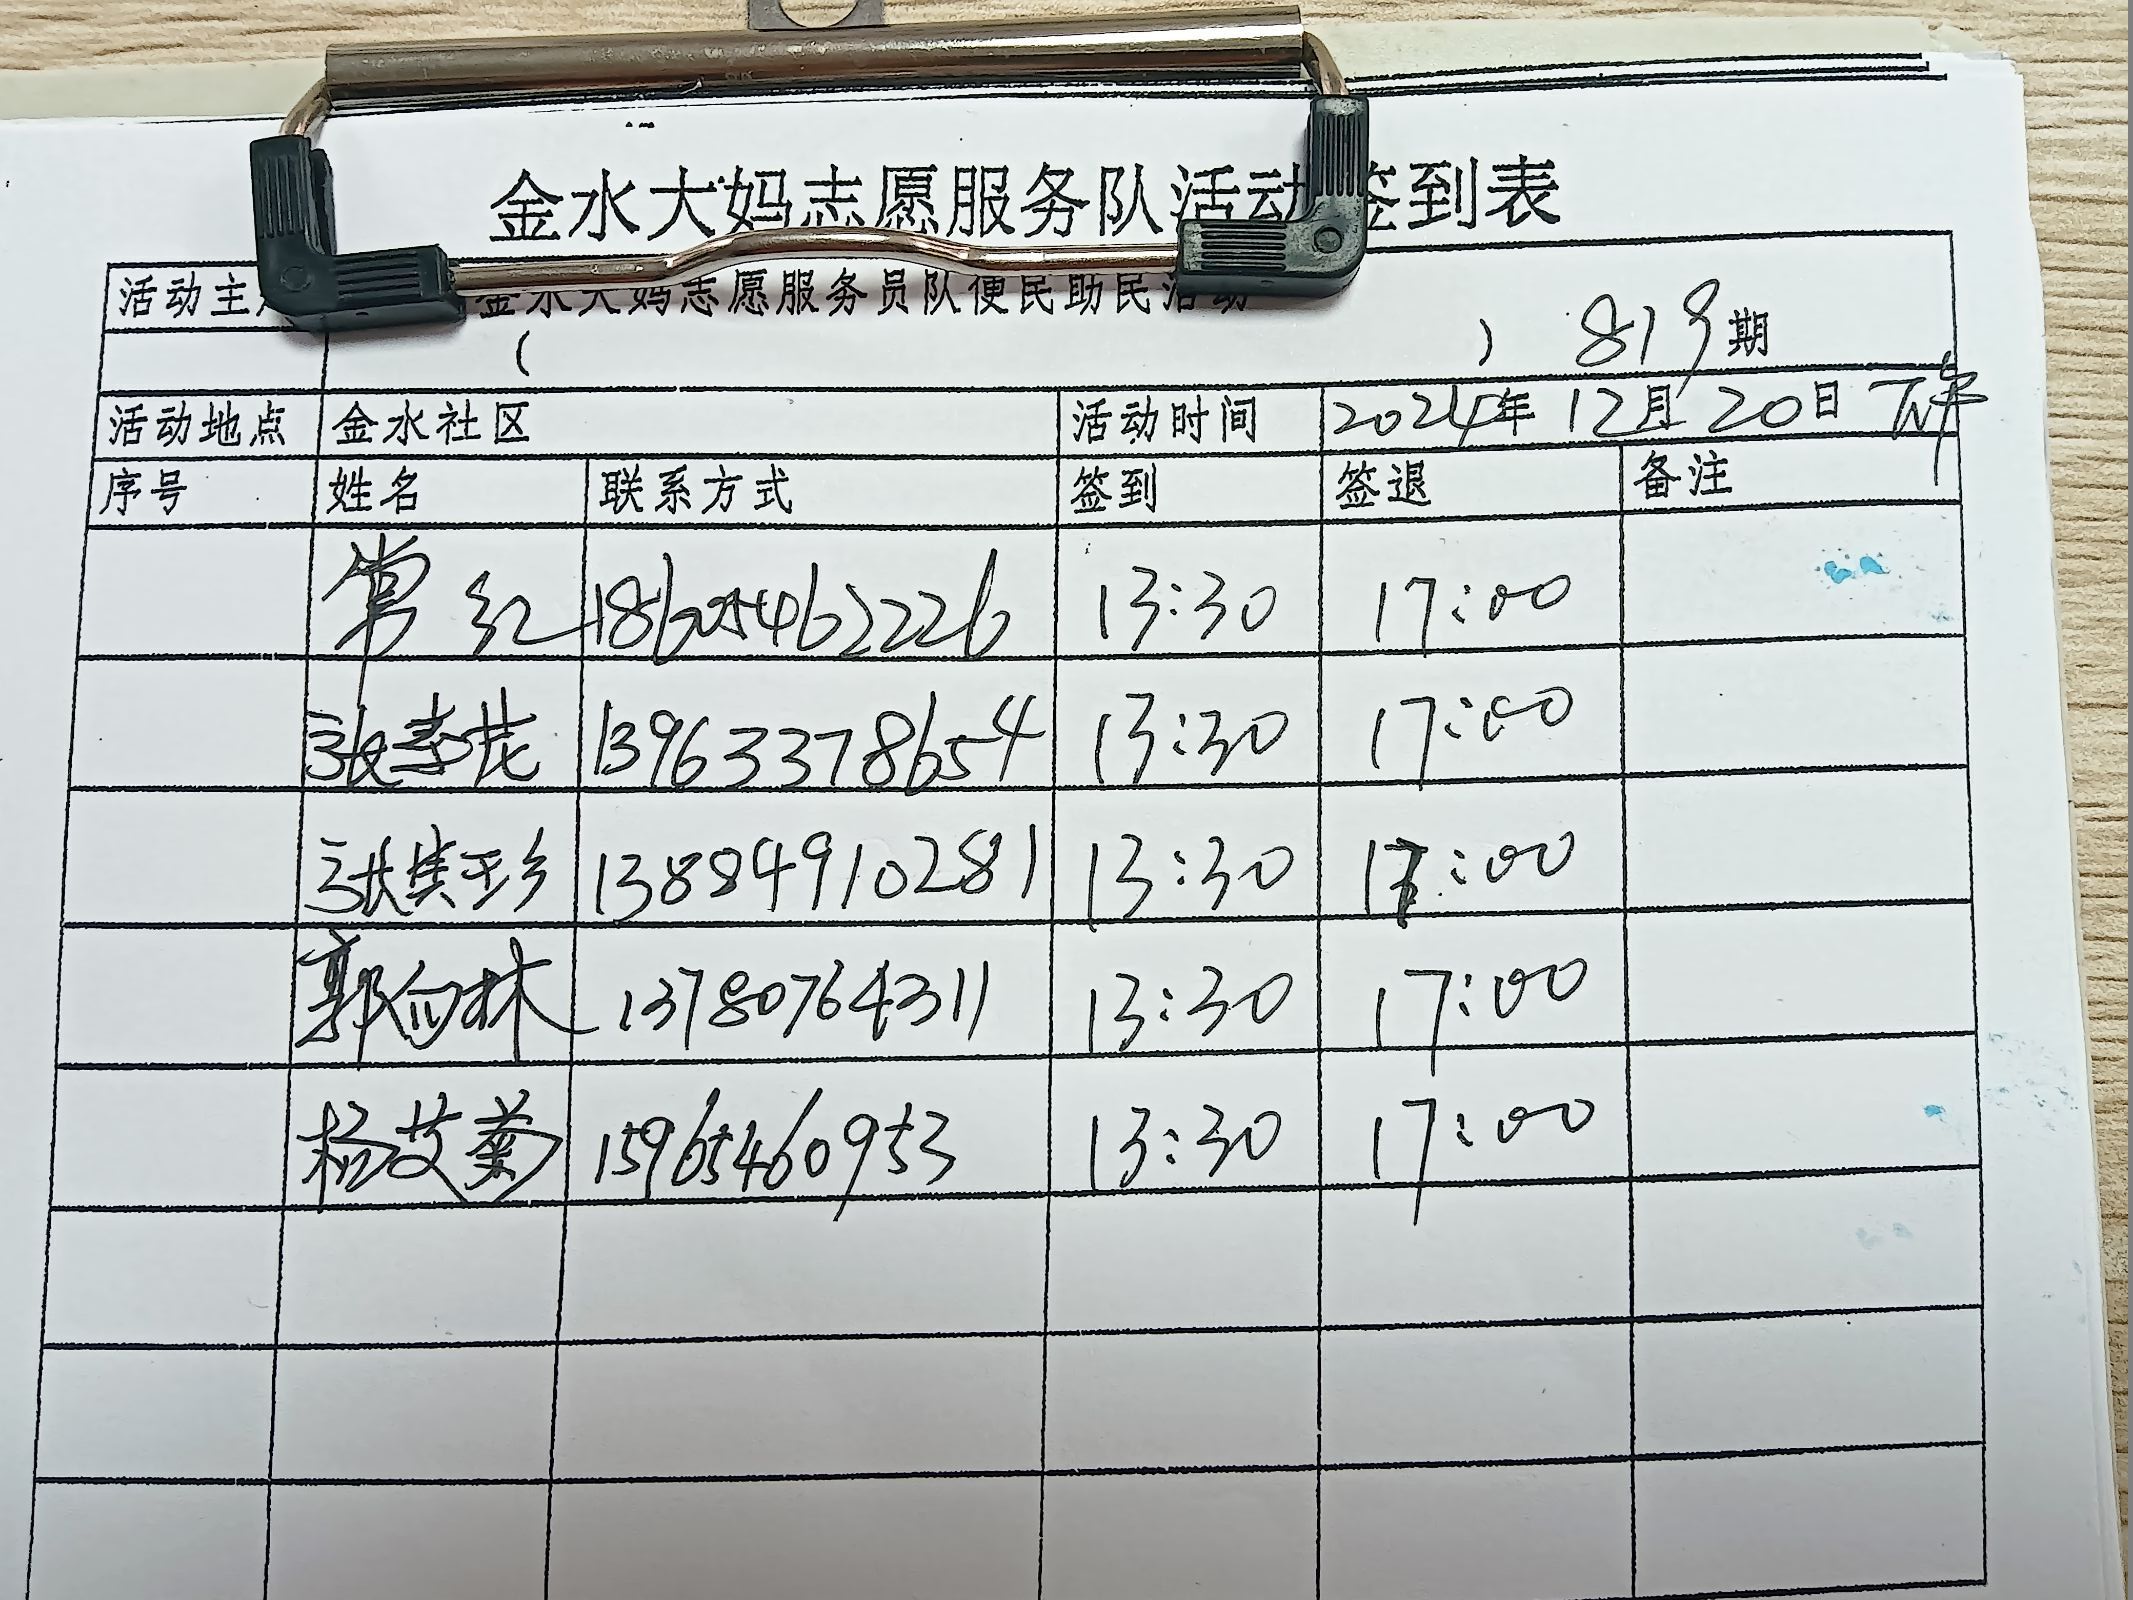 金水大妈志愿服务队活动签到表
活动主 金水大妈志愿服务员队便民助民活动
( ) 819期
活动地点 金水社区 活动时间 2024年12月20日 下午
序号 姓名 联系方式 签到 签退 备注
常红 18605462226 13:30 17:00
张 花 13963378654 13:30 17:00
张 彩 13884910281 13:30 17:00
郭向林 13780764311 13:30 17:00
杨艾菊 15965460953 13:30 17:00